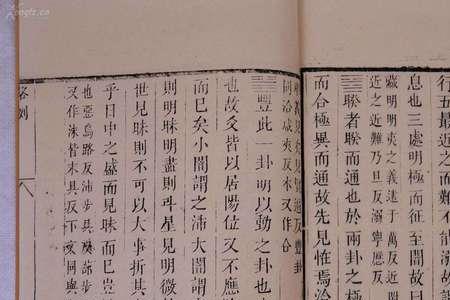 行五最近之而難不能
息也三處明極而征至闇故曰
藏明明夷之義遠于萬反近
近之近難乃旦反溺寧歷反
䷥睽者睽而通也於兩卦之極
而合極異而通故先見怪焉洽
同洽咸夾反本又作合
䷶豐此一卦明以動之卦也
也故爻皆以居陽位又不應
而已矣小闇謂之沛大闇謂
則明昧明盡則斗星見明微
世見昧則不可以大事折其
乎日中之盛而見昧而已豈
也惡烏路反沛步具反蔀步
又作沬皆末具反下文同與
畧例
八